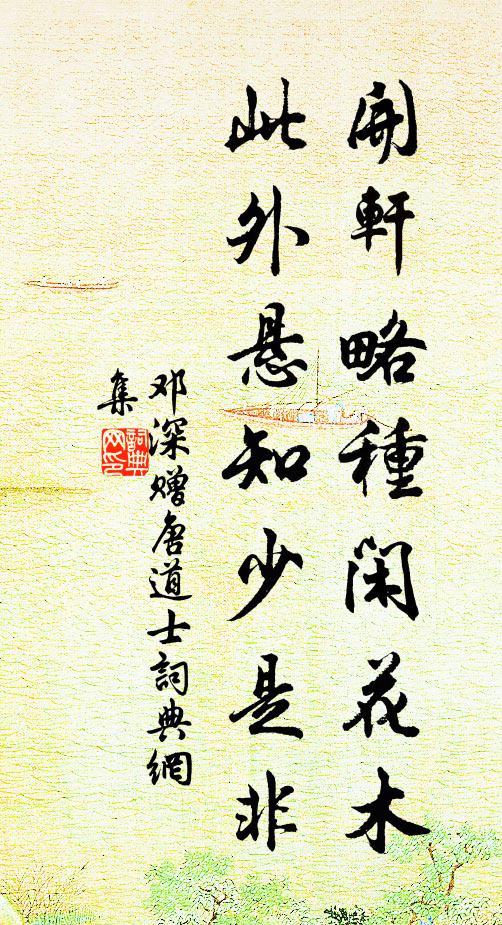 開軒略種閑花木
此外悬知少是非
邓深赠唐道士詞典網
集
詞典